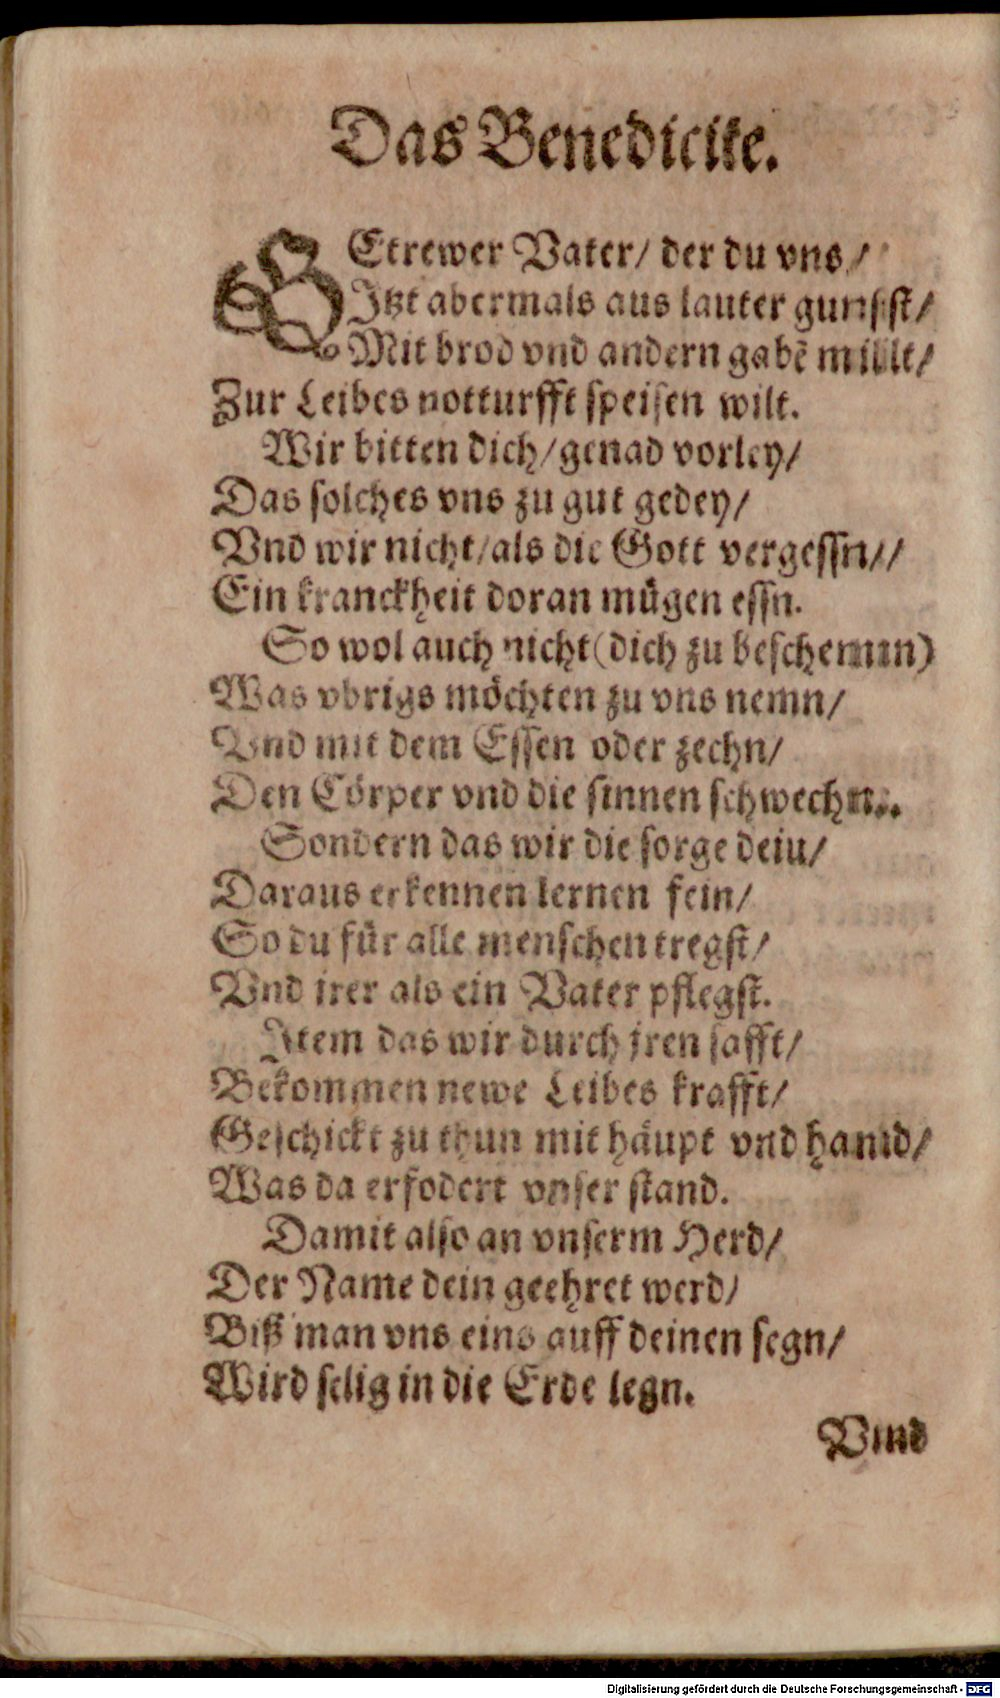 Das Benedicite.
GEtrewer Vater/ der du vns/
Itzt abermals aus lauter gunſſt/
Mit brod vnd andern gabē milt/
Zur Leibes notturfft ſpeiſen wilt.
Wir bitten dich/ genad vorley/
Das ſolches vns zu gut gedey/
Vnd wir nicht/ als die Gott vergeſſn//
Ein kranckheit doran mügen eſſn.
So wol auch nicht (dich zu beſchemn)
Was vbrigs möchten zu vns nemn/
Vnd mit dem Eſſen oder zechn/
Den Cörper vnd die ſinnen ſchwechn..
Sondern das wir die ſorge deiu/
Daraus erkennen lernen fein/
So du für alle menſchen tregſt/
Vnd irer als ein Vater pflegſt.
Item das wir durch jren ſafft/
Bekommen newe Leibes krafft/
Geſchickt zu thun mit häupt vnd hannd/
Was da erfodert vnſer ſtand.
Damit alſo an vnſerm Herd/
Der Name dein geehret werd/
Biß man vns eins auff deinen ſegn/
Wird ſelig in die Erde legn.
Vnnd
Digitalisierung gefördert durch die Deutsche Forschungsgemeinschaft - DFG